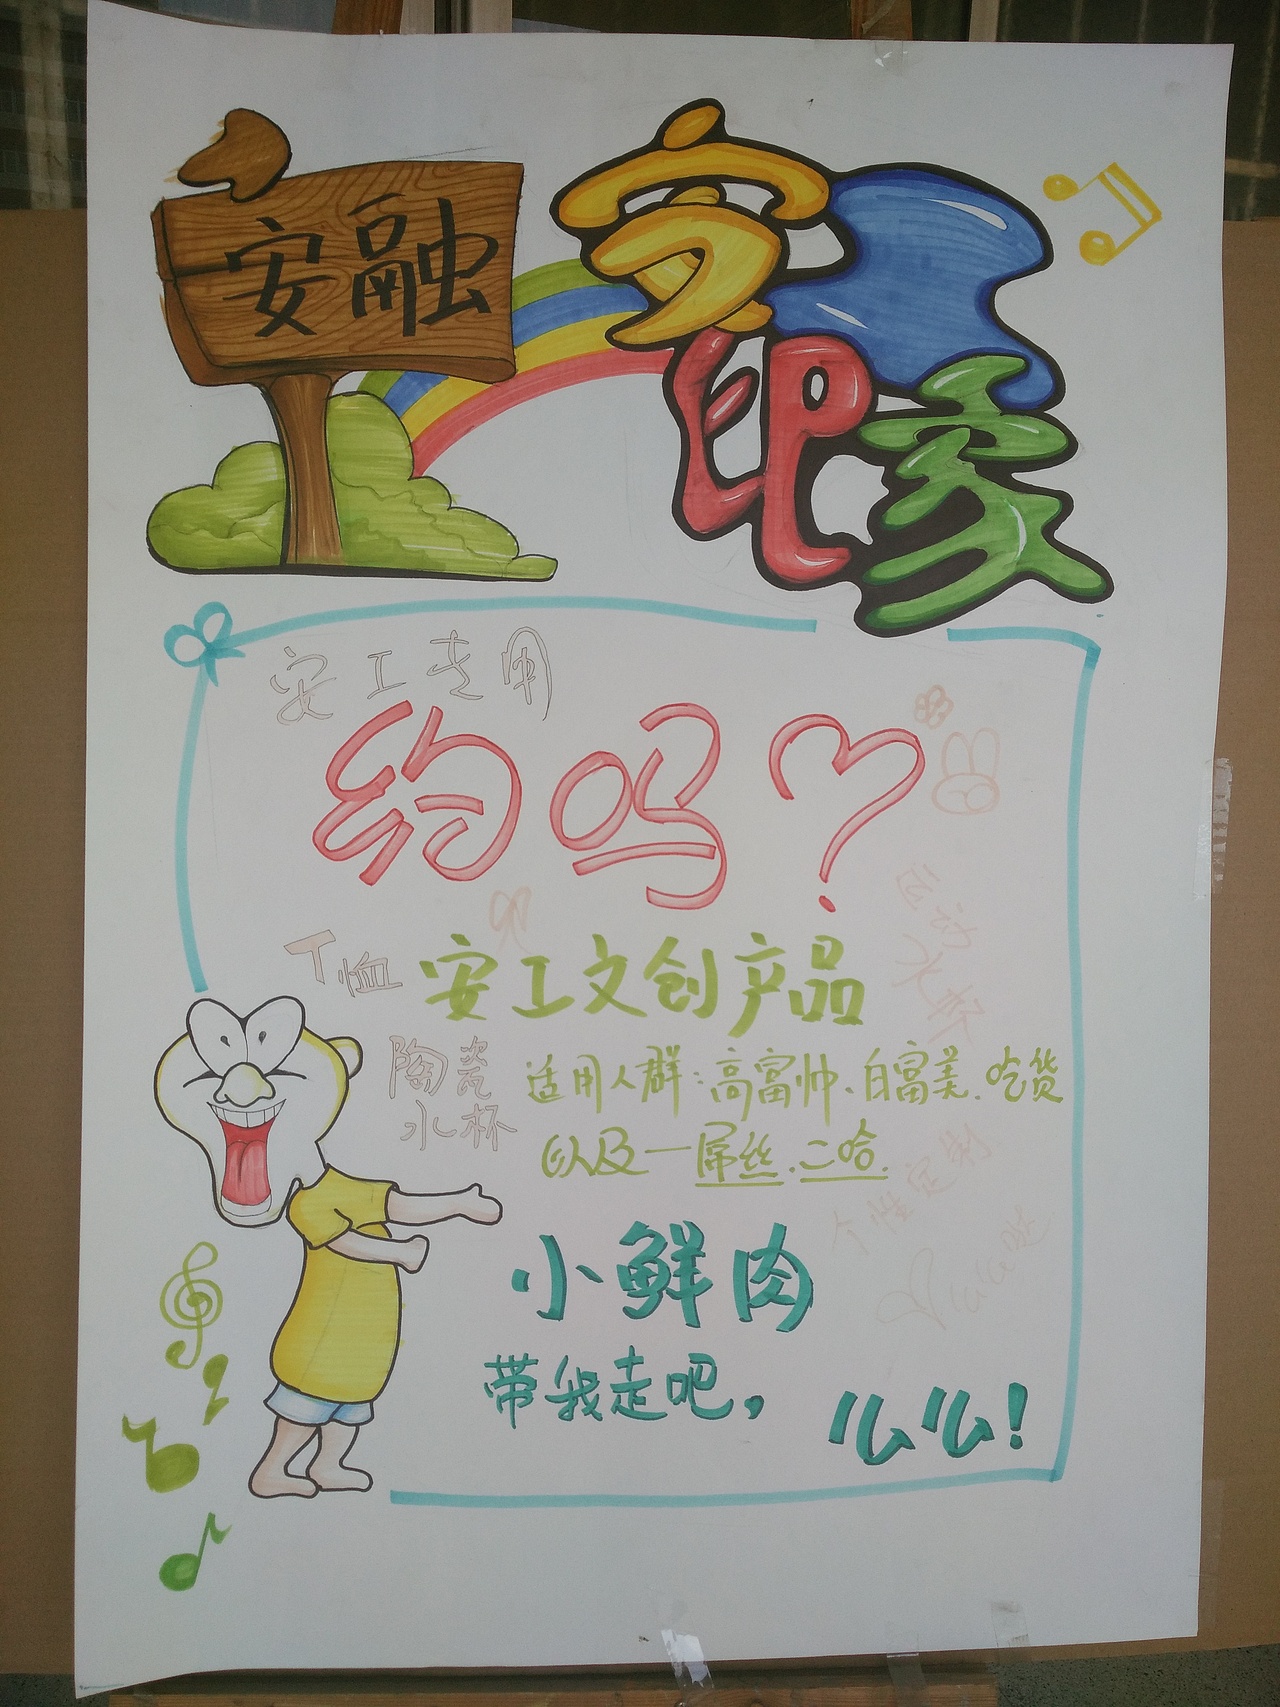 安融
安印象
安工专用
约吗?
T恤
安工文创产品
运动
水杯
陶瓷
水杯
适用人群:高富帅、白富美、吃货
以及一屌丝.二哈.
个性定制
小鲜肉
带我走吧,
么么!